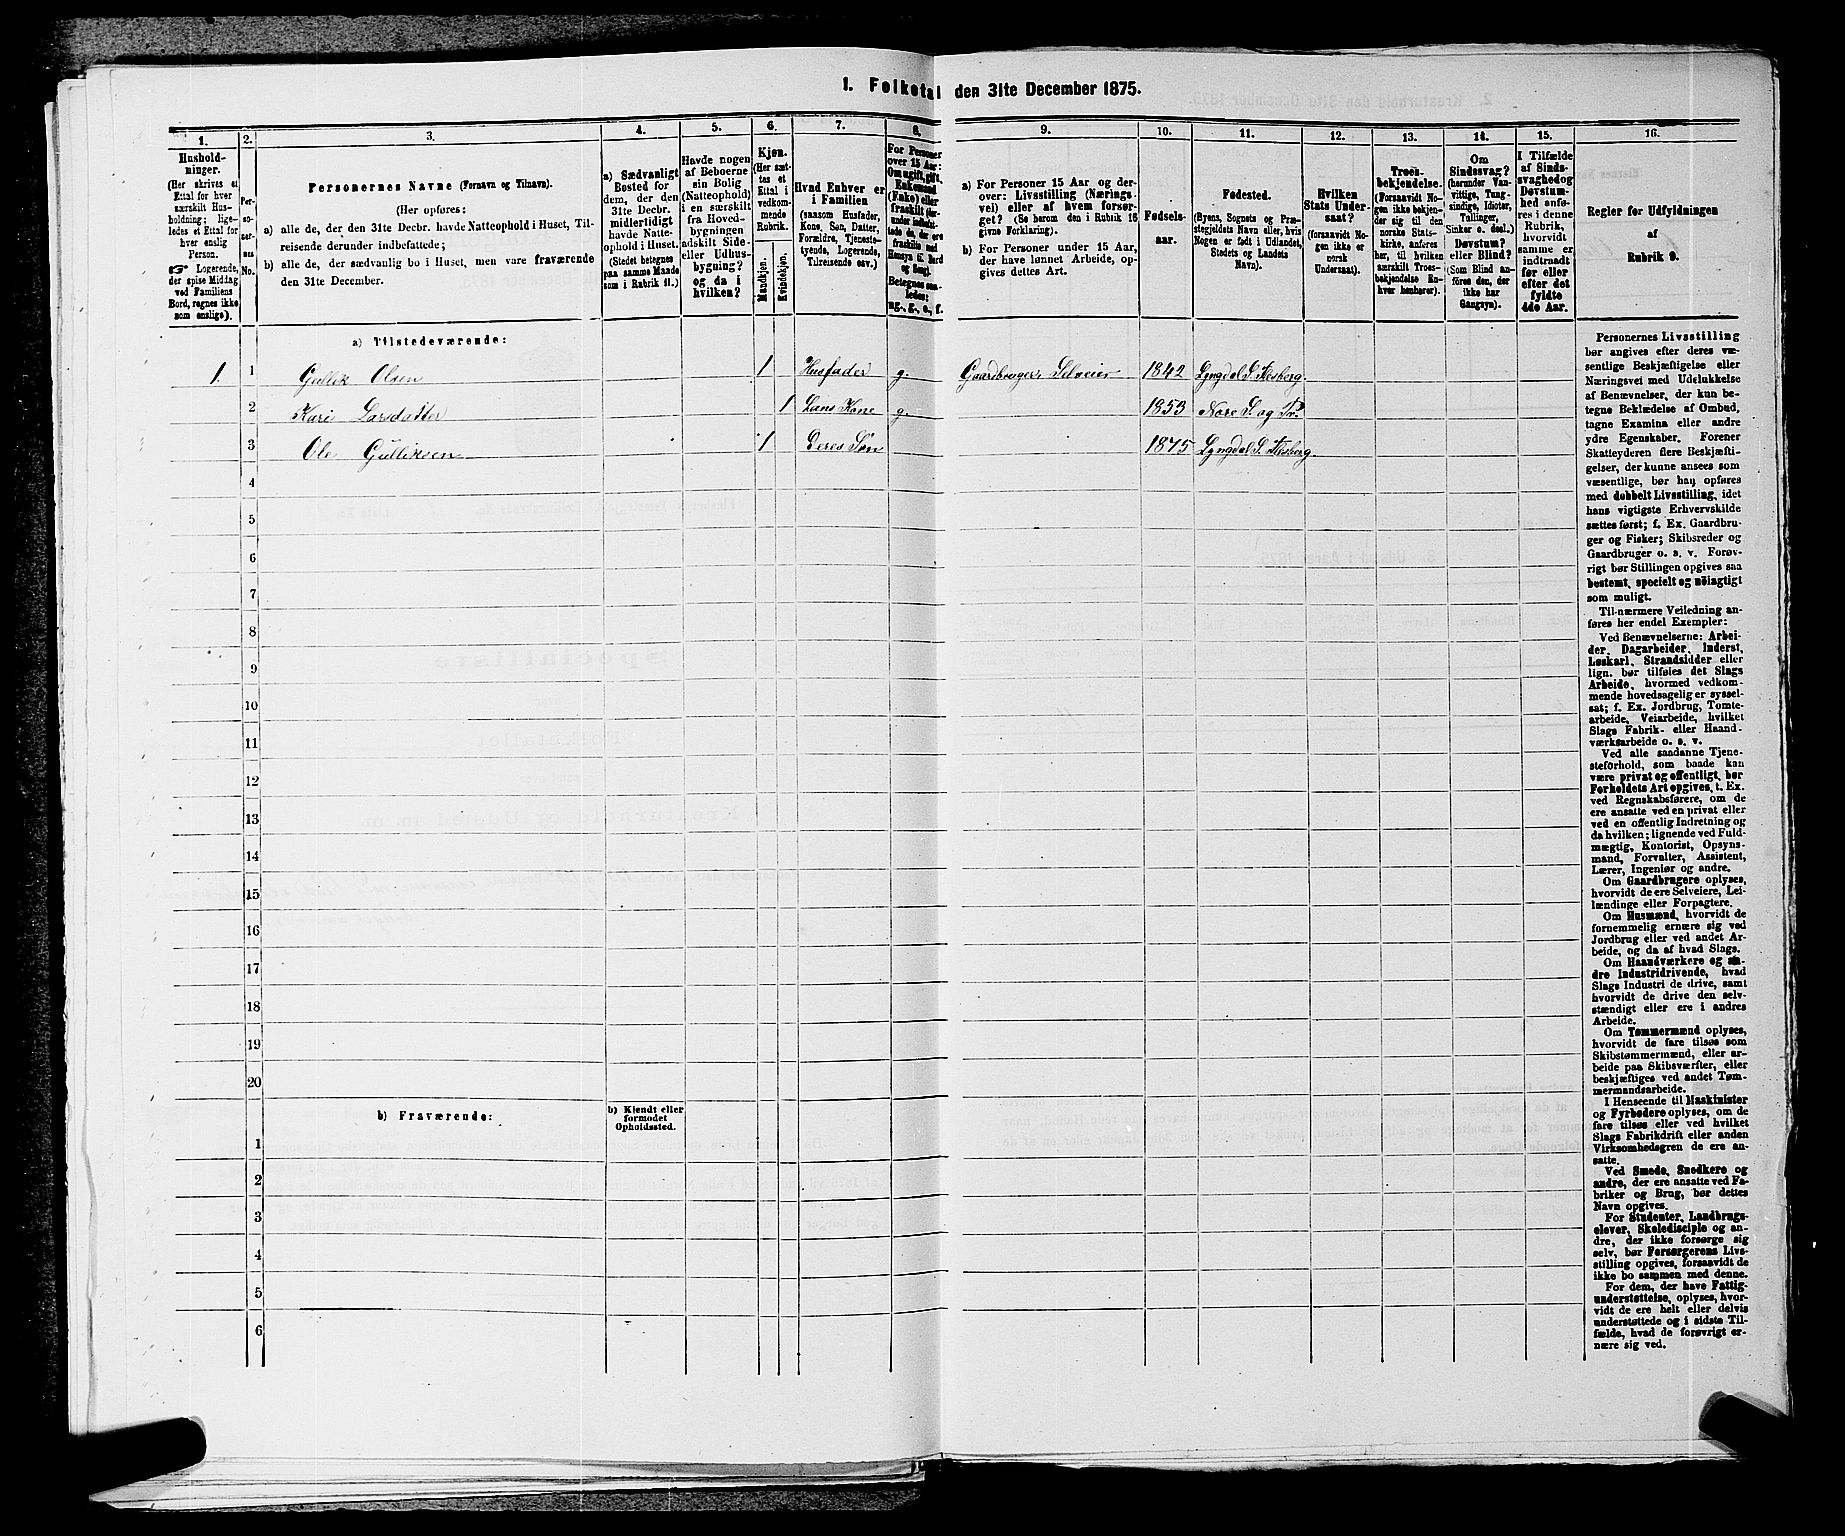 1. Folketal den 31te December 1875.
1.
2.
3.
4.
5.
6.
7.
8.
9.
10.
11.
12.
13.
14.
15.
16.
Hushold-
ninger.
(Her skrives et
Ettal for hver
særskilt Hus-
holdning; lige-
ledes et Ettal for
hver enslig
Person.
☞ Logerende,
der spise Middag
ved Familiens
Bord, regnes ikke
som enslige).
Per-
so-
ner-
nes
No.
Personernes Navne (Fornavn og Tilnavn).
(Her opføres:
a) alle de, der den 31te Decbr. havde Natteophold i Huset, Til-
reisende derunder indbefattede;
b) alle de, der sædvanlig bo i Huset, men vare fraværende
den 31te December.
a) Sædvanligt
Bosted for
dem, der den
31te Decbr.
midlertidigt
havde Natte-
ophold i Huset.
(Stedet betegnes
paa samme Maade
som i Rubrik 11.)
Havde nogen
af Beboerne
sin Bolig
(Natteophold)
i en særskilt
fra Hoved-
bygningen
adskilt Side-
eller Udhus-
bygning?
og da i
hvilken?
Kjøn.
(Her sæt-
tes et
Ettal i
vedkom-
mende
Rubrik.
Mandkjøn.
Kvindekjøn.
Hvad Enhver er
i Familien
(saasom Husfader,
Kone, Søn, Datter,
Forældre, Tjeneste-
tyende, Logerende,
Tilreisende osv.)
For Personer
over 15 Aar:
Om ugift, gift,
Enkemand
(Enke) eller
fraskilt
Betegnes saa-
ledes:
ug., g., e., f.
a) For Personer 15 Aar og der-
over: Livsstilling (Nærings-
vei) eller af hvem forsør-
get? (Se herom den i Rubrik 16
givne Forklaring).
b) For Personer under 15 Aar,
der have lønnet Arbeide, op-
gives dettes Art.
Fødsels-
aar.
Fødested.
(Byens, Sognets og Præ-
stegjeldets Navn eller, hvis
Nogen er født i Udlandet,
Stedets og Landets
Navn).
Hvilken
Stats Under-
saat?
(forsaavidt No-
gen ikke er
norsk
Undersaat).
Troes-
bekjendelse.
(Forsaavidt No-
gen ikke bekjen-
der sig til den
norske Stats-
kirke, anføres
her, til hvilken
særskilt Troes-
bekjendelse En-
hver henhører).
Om
Sindssvag?
(herunder Van-
vittige, Tung-
sindige, Idioter,
Tullinger,
Sinker o. desl.)
Døvstum?
eller Blind?
(Som Blind an-
føres den, der
ikke har
Gangsyn).
I Tilfælde
af Sinds-
svaghed og
Døvstum-
hed anfø-
res i denne
Rubrik,
hvorvidt
samme er
indtraadt
før eller
efter det
fyldte
4de Aar.
Regler for Udfyldningen
af
Rubrik 9.
a) Tilstedeværende:
1. 1 Gullik Olsen 1 Husfader g. Gaardbruger, Selveier 1842 Lyngdal S. Flesberg.
2 Kari Larsdatter 1 Hans Kone g. 1853 Nore S. og Pr.
3 Ole Gulliksen 1 Deres Søn 1875 Lyngdal S. Flesberg
4
5
6
7
8
9
10
11
12
13
14
15
16
17
18
19
20
b) Fraværende:
b) Kjendt eller
formodet
Opholdssted.
1
2
3
4
5
6
Personernes Livsstilling
bør angives efter deres væ-
sentlige Beskjæftigelse eller
Næringsvei med Udelukkelse
af Benævnelser, der kun be-
tegne Beklædelse af Ombud,
tagne Examina eller andre
ydre Egenskaber. Forener
Skatteyderen flere Beskjæfti-
gelser, der kunne ansees som
væsentlige, bør han opføres
med dobbelt Livsstilling, idet
hans vigtigste Erhvervskilde
sættes først; f. Ex. Gaardbru-
ger og Fisker; Skibsreder og
Gaardbruger o. s. v. Forøv-
rigt bør Stillingen opgives saa
bestemt, specielt og nøiagtigt
som muligt.
Til nærmere Veiledning an-
føres her endel Exempler:
Ved Benævnelserne: Arbei-
der, Dagarbeider, Inderst,
Løskarl, Strandsidder eller
lign. bør tilføies det Slags
Arbeide, hvormed vedkom-
mende hovedsagelig er syssel-
sat; f. Ex. Jordbrug, Tomte-
arbeide, Veiarbeide, hvilket
Slags Fabrik- eller Haand-
værksarbeide o. s. v.
Ved alle saadanne Tjene-
steforhold, som baade kan
være privat og offentligt, bør
Forholdets Art opgives, t. Ex.
ved Regnskabsførere, om de
ere ansatte ved en privat eller
ved en offentlig Indretning og
da hvilken; lignende ved Fuld-
mægtig, Kontorist, Opsyns-
mand, Forvalter, Assistent,
Lærer, Ingeniør og andre.
Om Gaardbrugere oplyses,
hvorvidt de ere Selveiere, Lei-
lændinge eller Forpagtere.
Om Husmænd, hvorvidt de
fornemmelig ernære sig ved
Jordbrug eller ved andet Ar-
beide, og da af hvad Slags.
Om Haandværkere og an-
dre Industridrivende, hvad
Slags Industri de drive, samt
hvorvidt de drive den selv-
stændigt eller ere i andres
Arbeide.
Om Tømmermænd oplyses,
hvorvidt de fare tilsøs som
Skibstømmermænd, eller ar-
beide paa Skibsværfter, eller
beskjæftiges ved andet Tøm-
mermandsarbeide.
I Henseende til Maskinister
og Fyrbødere oplyses, om de
fare tilsøs eller ved hvilket
Slags Fabrikdrift eller anden
Virksomhedsgren de ere an-
satte.
Ved Smede, Snedkere og
andre, der ere ansatte ved Fa-
briker og Brug, bør dettes
Navn opgives.
For Studenter, Landbrugs-
elever, Skoledisciple og an-
dre, der ikke forsørge sig
selv, bør Forsørgerens Livs-
stilling opgives, forsaavidt de
ikke bo sammen med denne.
For dem, der have Fattig-
understøttelse, oplyses, hvor-
vidt de ere helt eller delvis
understøttede og i sidste Til-
fælde, hvad de forøvrigt er-
nære sig ved.